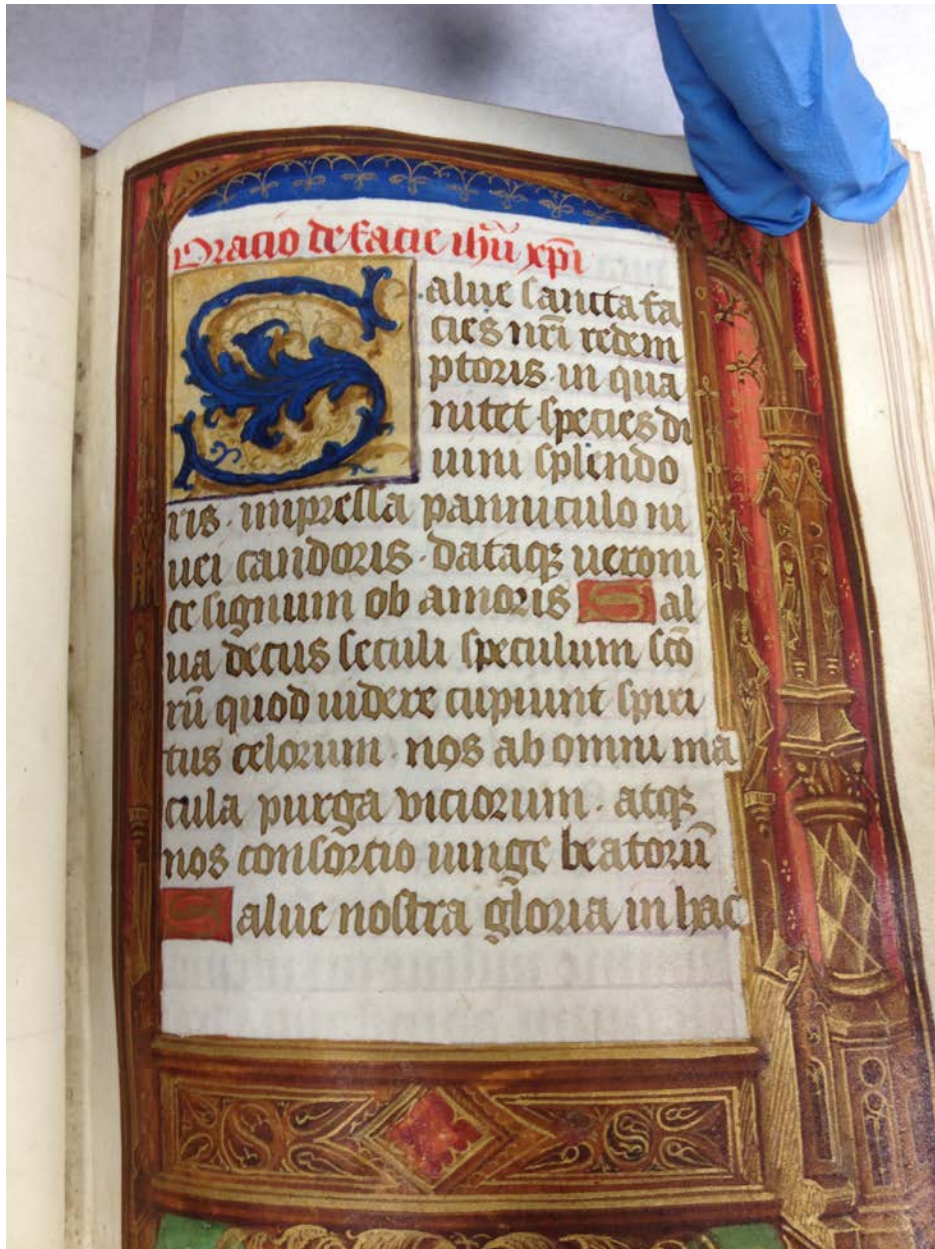 Oracio de facie ihū xp̄i
Salue sancta fa
cies nr̄i redem
ptoris · in qua
nitet species di
uini splendo
ris · impressa panniculo ni
uei candoris · dataqꝫ ueroni
ce signum ob amoris Sal
ua decus seculi speculum sc̄o
rū quod uidere cupiunt spiri
tus celorum · nos ab omni ma
cula purga viciorum · atqꝫ
nos consorcio iunge beatorū
Salue nostra gloria in hac